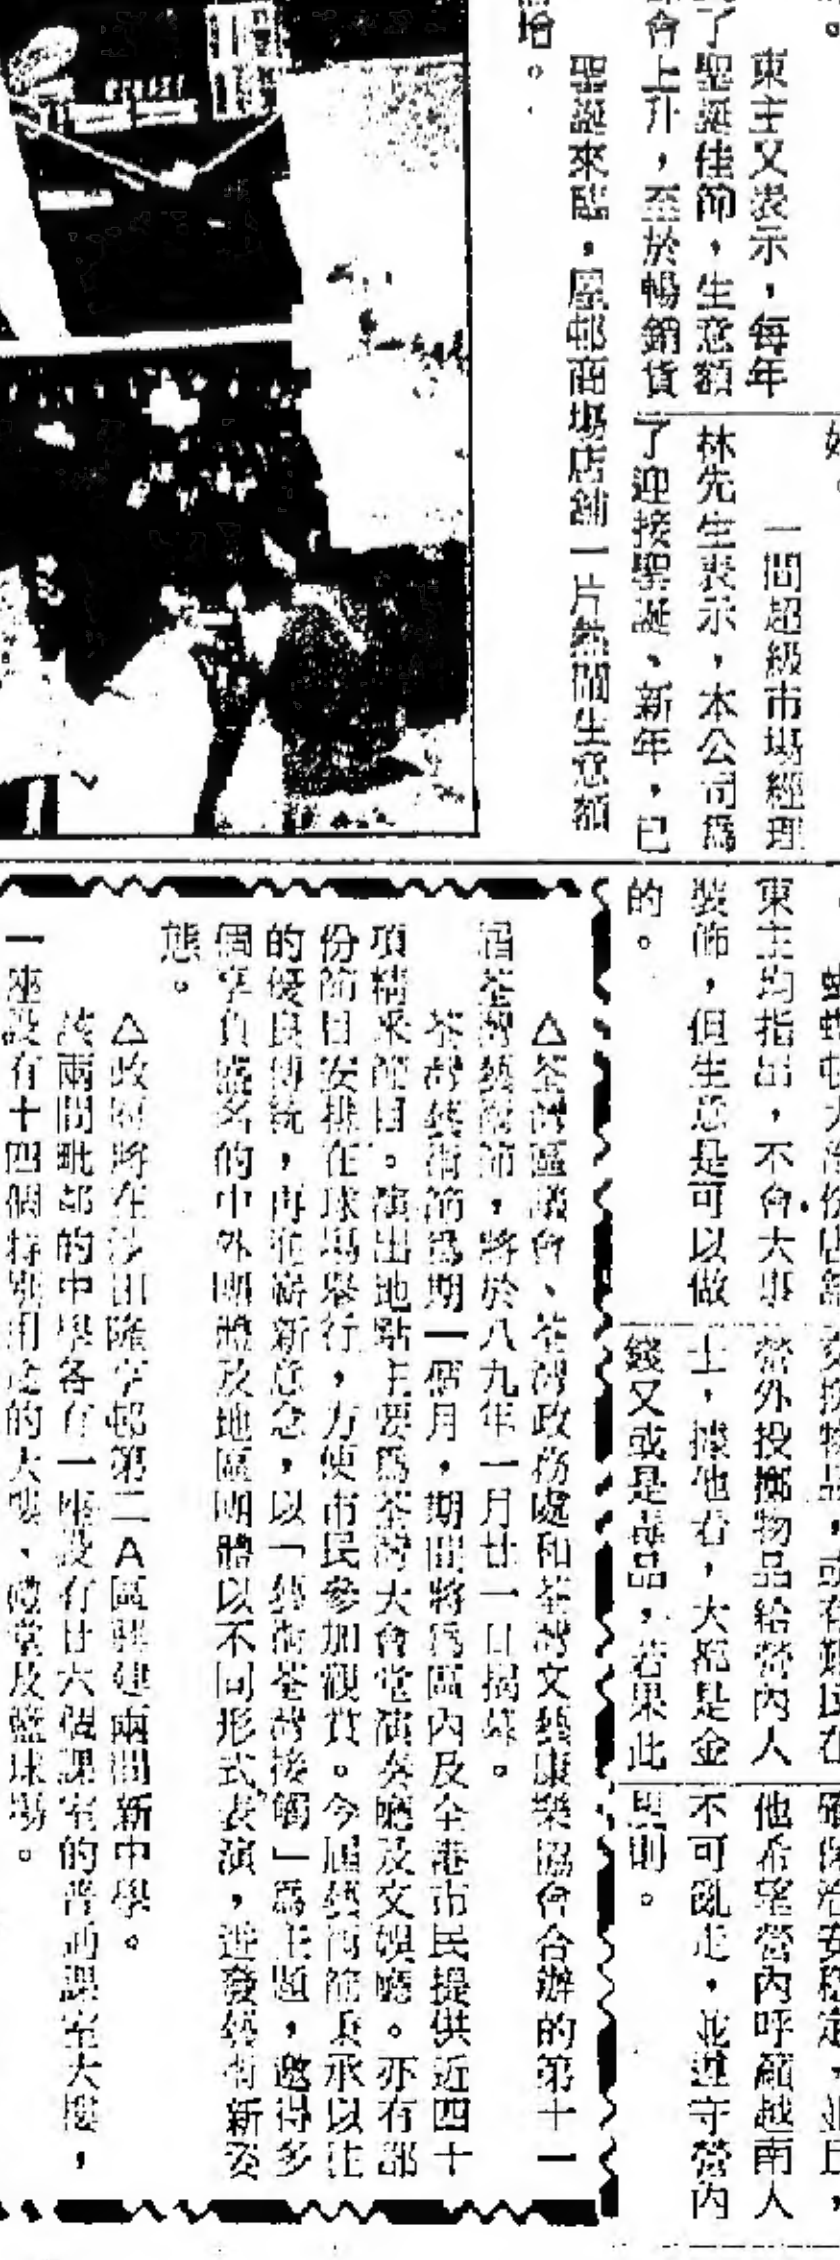 東主又表示，每年
了聖誕佳節，生意額
會上升，至於暢銷貨
聖誕來臨，屋邨商場店舖一片熱鬧生意額
一間超級市場經理
林先生表示，本公司為
了迎接聖誕、新年，已
東主均指出，不會大事
裝飾，但生意是可以做
的。
營外投擲物品給營內人
士，據他看，大都是金
錢又或是毒品，若果此
確保治安穩定，並且，
他希望營內呼籲越南人
不可亂走，並遵守營內
△荃灣區議會、荃灣政務處和荃灣文藝康樂協會合辦的第十一
屆荃灣藝術節，將於八九年一月廿一日揭幕。
荃灣藝術節為期一個月，期間將為區內及全港市民提供近四十
項精采節目。演出地點主要為荃灣大會堂演奏廳及文娛廳。亦有部
份節目安排在球場舉行，方便市民參加觀賞。今屆藝術節秉承以往
的優良傳統，再注嶄新意念，以「藝術荃灣接觸」為主題，邀得多
個享負盛名的中外團體及地區團體以不同形式表演，迸發藝術新姿
態。
△政府將在沙田隆亨邨第二A區興建兩間新中學。
該兩間毗鄰的中學各有一座設有廿六個課室的普通課室大樓，
一座設有十四個特別用途的大樓、禮堂及籃球場。